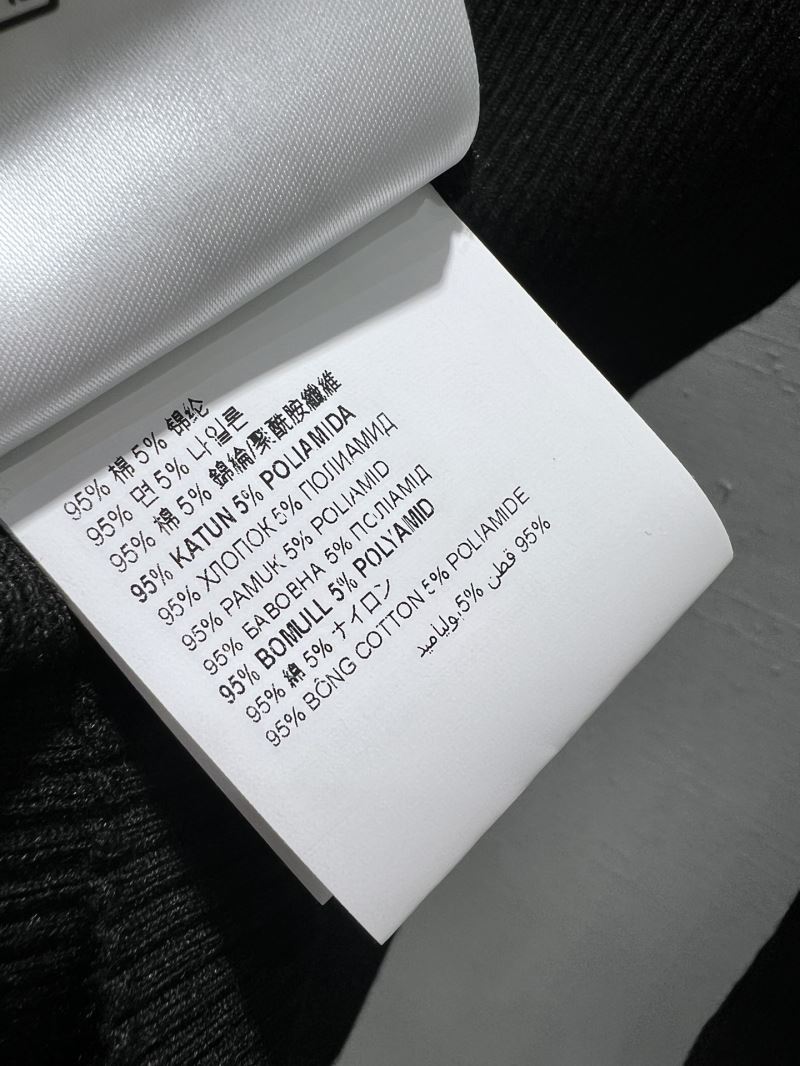 95% 棉 5% 锦纶
95% 면 5% 나일론
95% 棉 5% 錦綸/聚酰胺纖維
95% KATUN 5% POLIAMIDA
95% ХЛОПОК 5% ПОЛИАМИД
95% PAMUK 5% POLIAMID
95% БАВОВНА 5% ПОЛІАМІД
95% BOMULL 5% POLYAMID
95% 綿 5% ナイロン
95% BÔNG COTTON 5% POLIAMIDE
95% قطن 5% بولياميد